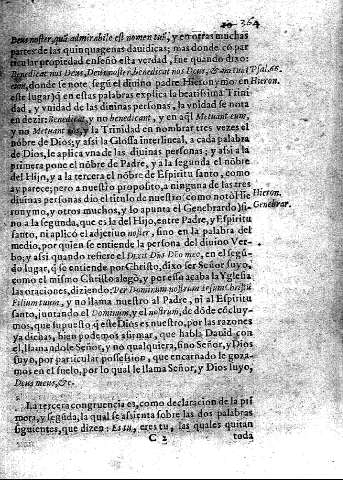 20 364
Deus noster, quã admirabile est nomen tuũ, y en otras muchas
partes de las quinquagenas dauidicas; mas donde cõ par
ticular propiedad enseñò esta verdad, fue quando dixo:
Benedicat nos Deus, Deus noster, benedicat nos Deus, & metuãt Psal. 66.
eum, donde se note segũ el diuino padre Hieronymo en Hieron.
este lugar) q̃ en estas palabras explica la beatissima Trini
dad, y vnidad de las diuinas personas, la vnidad se nota
en dezir: Benedicat, y no benedicant, y en aq̃l Metuant eum,
y no Metuant eos, y la Trinidad en nombrar tres vezes el
nõbre de Dios; y assi la Glossa interlineal, a cada palabra
de Dios, le aplica vna de las diuinas personas; y assi a la
primera pone el nõbre de Padre, y a la segunda el nõbre
del Hijo, y a la tercera el nõbre de Espiritu santo, como
ay parece; pero a nuestro proposito, a ninguna de las tres
diuinas personas dio el titulo de nuestro: como notò Hie Hieron.
ronymo, y otros muchos, y lo apunta el Genebrardo) si- Genebrar.
no a la segunda, que es la del Hijo, entre Padre, y Espiritu
santo, ni aplicò el adjetiuo noster, sino en la palabra del
medio, por quien se entiende la persona del diuino Ver-
bo, y assi quando refiere el Dixit Dñs Dño meo, en el segũ-
do lugar, q̃ se entiende por Christo, dixo ser Señor suyo,
como el mismo Christo alegò, y por essa acaba la Yglesia
las oraciones, diziendo: Per Dominum nostrum Iesum Christũ
Filium tuum, y no llama nuestro al Padre, ni al Espiritu
santo, juntando el Dominum, y el nostrum, de dõde cõcluy-
mos, que supuesto q̃ este Dios es nuestro, por las razones
ya dichas, bien podemos afirmar, que habla Dauid con
el, llamandole Señor, y no qualquiera, sino Señor, y Dios
suyo, por particular possession, que encarnado le goza-
mos en el suelo, por lo qual le llama Señor, y Dios suyo,
Deus meus, &c.
La tercera congruencia es, como declaracion de la pri
mera, y segũda, la qual se assienta sobre las dos palabras
siguientes, que dizen: Es tu, eres tu, las quales quitan
C 2 toda